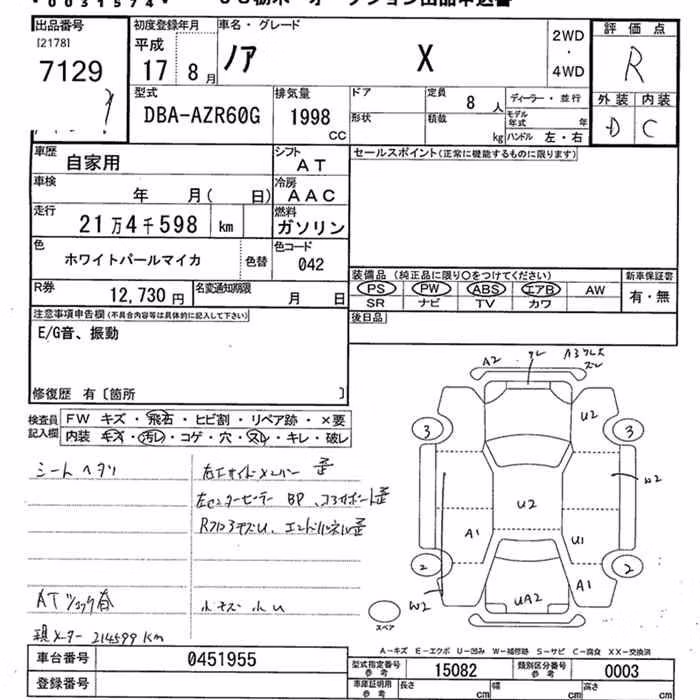 0031574
出品番号 初度登録年月 車名・グレード 2WD・4WD 評価点
[2178] 平成 ノア X R
7129 17年 8月
外装 内装
D C
型式 排気量 ドア 定員 ディーラー・並行
DBA-AZR60G 1998 CC 8人
形状 積載 kg モデル年式 年
ハンドル 左・右
車歴 自家用 シフト AT セールスポイント(正常に機能するものに限ります)
車検 年 月( 日) 冷房 AAC
走行 21万4千598 km 燃料 ガソリン
色 ホワイトパールマイカ 色替 色コード 042
装備品 (純正品に限り○をつけてください) 新車保証書
PS PW ABS エアB AW 有・無
SR ナビ TV カワ
R券 12,730円 名変通知期限 月 日
後日品
注意事項申告欄(不具合内容等は具体的に記入して下さい)
E/G音、振動
修復歴 有〔箇所 〕
検査員記入欄 FW キズ・飛石・ヒビ割・リペア跡・×要
内装 キズ・汚レ・コゲ・穴・スレ・キレ・破レ
シートヘタリ
右エサイドメンバー歪
左センターピラー BP、コアサポート歪
RフロアキズU、エンドパネル歪
ATショック有
小キズ 小U
現メーター 214599 KM
A2
U2
3 3
U2 W2
A1 U1
2 2
W2 UA2 A1
スペア
A-キズ E-エクボ U-凹み W-補修跡 S-サビ C-腐食 XX-交換済
車台番号 0451955
型式指定番号 参考 15082 類別区分番号 参考 0003
登録番号
車庫証明用 参考 長さ cm 幅 cm 高さ cm